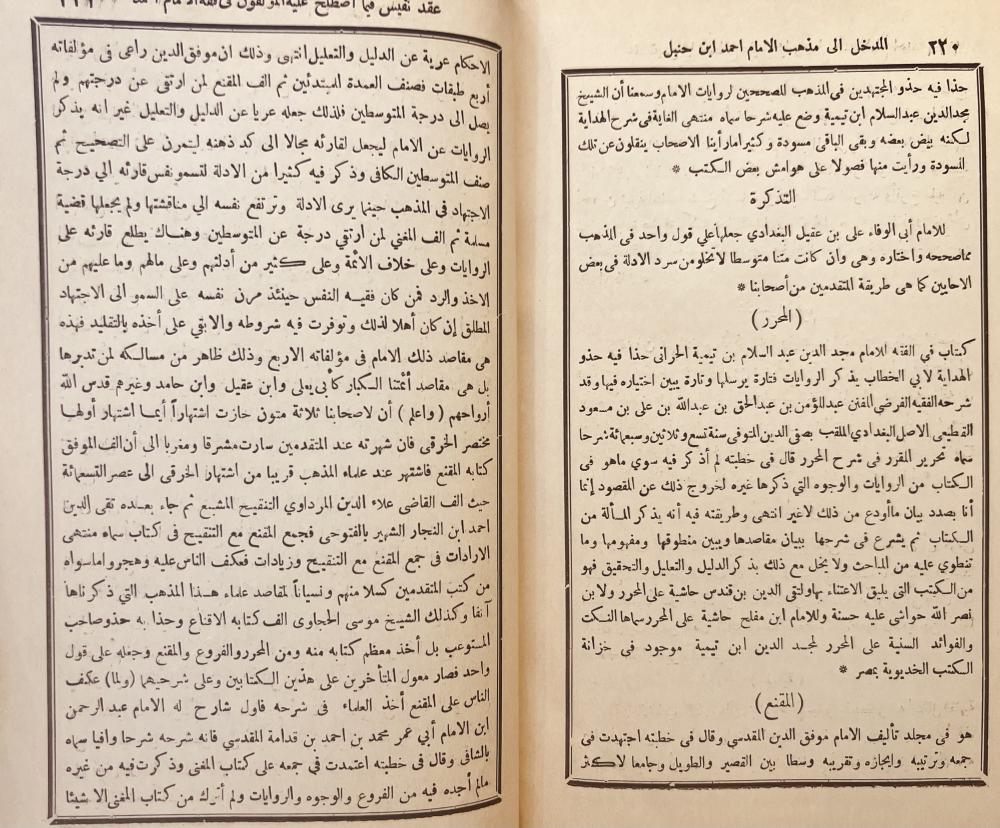 ٢٢٠ المدخل الى مذهب الامام احمد ابن حنبل
حذا فيه حذو المجتهدين في المذهب المصححين لروايات الامام وسمعنا أن الشيخ
مجد الدين عبد السلام ابن تيمية وضع عليه شرحا سماه منتهى الغاية في شرح الهداية
لكنه بيض بعضه وبقى الباقى مسودة وكثيرا ما رأينا الاصحاب ينقلون عن تلك
المسودة ورأيت منها فصولا على هوامش بعض الكتب *
التذكرة
للامام أبي الوفاء على بن عقيل البغدادي جعلها علي قول واحد في المذهب
مما صححه واختاره وهى وان كانت متنا متوسطا لا تخلو من سرد الادلة في بعض
الاحايين كما هى طريقة المتقدمين من أصحابنا *
( المحرر )
كتاب في الفقه للامام مجد الدين عبد السلام بن تيمية الحراني حذا فيه حذو
الهداية لابي الخطاب يذكر الروايات فتارة يرسلها وتارة يبين اختياره فيها وقد
شرحه الفقيه الفرضي المفنن عبد المؤمن بن عبد الحق بن عبد الله بن على بن مسعود
القطيعى الاصل البغدادي الملقب بصفى الدين المتوفى سنة تسع وثلاثين وسبعمائة شرحا
سماه تحرير المقرر في شرح المحرر قال فى خطبته لم أذكر فيه سوي ماهو فى
الكتاب من الروايات والوجوه التي ذكرها غيره لخروج ذلك عن المقصود إنما
أنا بصدد بيان ما أودع من ذلك لاغير انتهى وطريقته فيه أنه يذكر المسألة من
الكتاب ثم يشرع في شرحها ببيان مقاصدها ويبين منطوقها ومفهومها وما
تنطوي عليه من المباحث ولا يخل مع ذلك بذكر الدليل والتعليل والتحقيق فهو
من الكتب التي يليق الاعتناء بها ولتقي الدين بن قندس حاشية على المحرر ولابن
نصر الله حواشي عليه حسنة وللامام ابن مفلح حاشية على المحرر سماها النكت
والفوائد السنية على المحرر لمجد الدين ابن تيمية موجود في خزانة
الكتب الخديوية بمصر *
( المقنع )
هو فى مجلد تأليف الامام موفق الدين المقدسي وقال فى خطبته اجتهدت فى
جمعه وترتيبه وإيجازه وتقريبه وسطا بين القصير والطويل وجامعا لاكثر
عقد نفيس فيما اصطلح عليه المؤلفون فى فقه الامام احمد
الاحكام عرية عن الدليل والتعليل انتهى وذلك ان موفق الدين راعى في مؤلفاته
أربع طبقات فصنف العمدة للمبتدئين ثم الف المقنع لمن ارتقى عن درجتهم ولم
يصل الى درجة المتوسطين فلذلك جعله عريا عن الدليل والتعليل غير انه يذكر
الروايات عن الامام ليجعل لقارئه مجالا الى كد ذهنه ليتمرن على التصحيح ثم
صنف للمتوسطين الكافى وذكر فيه كثيرا من الادلة لتسمو نفس قارئه الي درجة
الاجتهاد في المذهب حينما يرى الادلة وترتفع نفسه الي مناقشتها ولم يجعلها قضية
مسلمة ثم الف المغني لمن ارتقي درجة عن المتوسطين وهناك يطلع قارئه على
الروايات وعلى خلاف الائمة وعلى كثير من أدلتهم وعلى مالهم وما عليهم من
الاخذ والرد فمن كان فقيه النفس حينئذ مرن نفسه على السمو الى الاجتهاد
المطلق إن كان أهلا لذلك وتوفرت فيه شروطه والا بقي على أخذه بالتقليد فهذه
هى مقاصد ذلك الامام فى مؤلفاته الاربع وذلك ظاهر من مسالكه لمن تدبرها
بل هي مقاصد أئمتنا الكبار كأبي يعلى وابن عقيل وابن حامد وغيرهم قدس الله
أرواحهم ( واعلم ) أن لاصحابنا ثلاثة متون حازت اشتهاراً أيما اشتهار أولها
مختصر الخرقي فان شهرته عند المتقدمين سارت مشرقا ومغربا الى أن الف الموفق
كتابه المقنع فاشتهر عند علماء المذهب قريبا من اشتهار الخرقى الى عصر التسعمائة
حيث الف القاضى علاء الدين المرداوي التنقيح المشبع ثم جاء بعده تقى الدين
احمد ابن النجار الشهير بالفتوحى فجمع المقنع مع التنقيح فى كتاب سماه منتهى
الارادات فى جمع المقنع مع التنقيح وزيادات فعكف الناس عليه وهجروا ماسواه
من كتب المتقدمين كسلا منهم ونسياناً لمقاصد علماء هذا المذهب التي ذكرناها
آنفا وكذلك الشيخ موسى الحجاوى الف كتابه الاقناع وحذا به حذو صاحب
المستوعب بل أخذ معظم كتابه منه ومن المحرر والفروع والمقنع وجعله على قول
واحد فصار معول المتأخرين على هذين الكتابين وعلى شرحيهما (ولما) عكف
الناس على المقنع أخذ العلماء فى شرحه فاول شارح له الامام عبد الرحمن
ابن الامام أبي عمر محمد بن احمد بن قدامة المقدسي فانه شرحه شرحا وافيا سماه
بالشافى وقال فى خطبته اعتمدت في جمعه على كتاب المغنى وذكرت فيه من غيره
مالم أجده فيه من الفروع والوجوه والروايات ولم أترك من كتاب المغنى الا شيئا